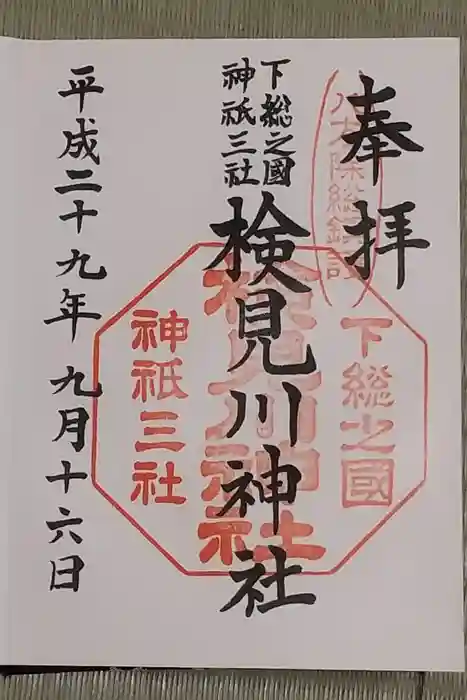 奉拝
八方除総鎮護
下総之國
下総之國
神祇三社
検見川神社
検見川神社
神祇三社
平成二十九年九月十六日